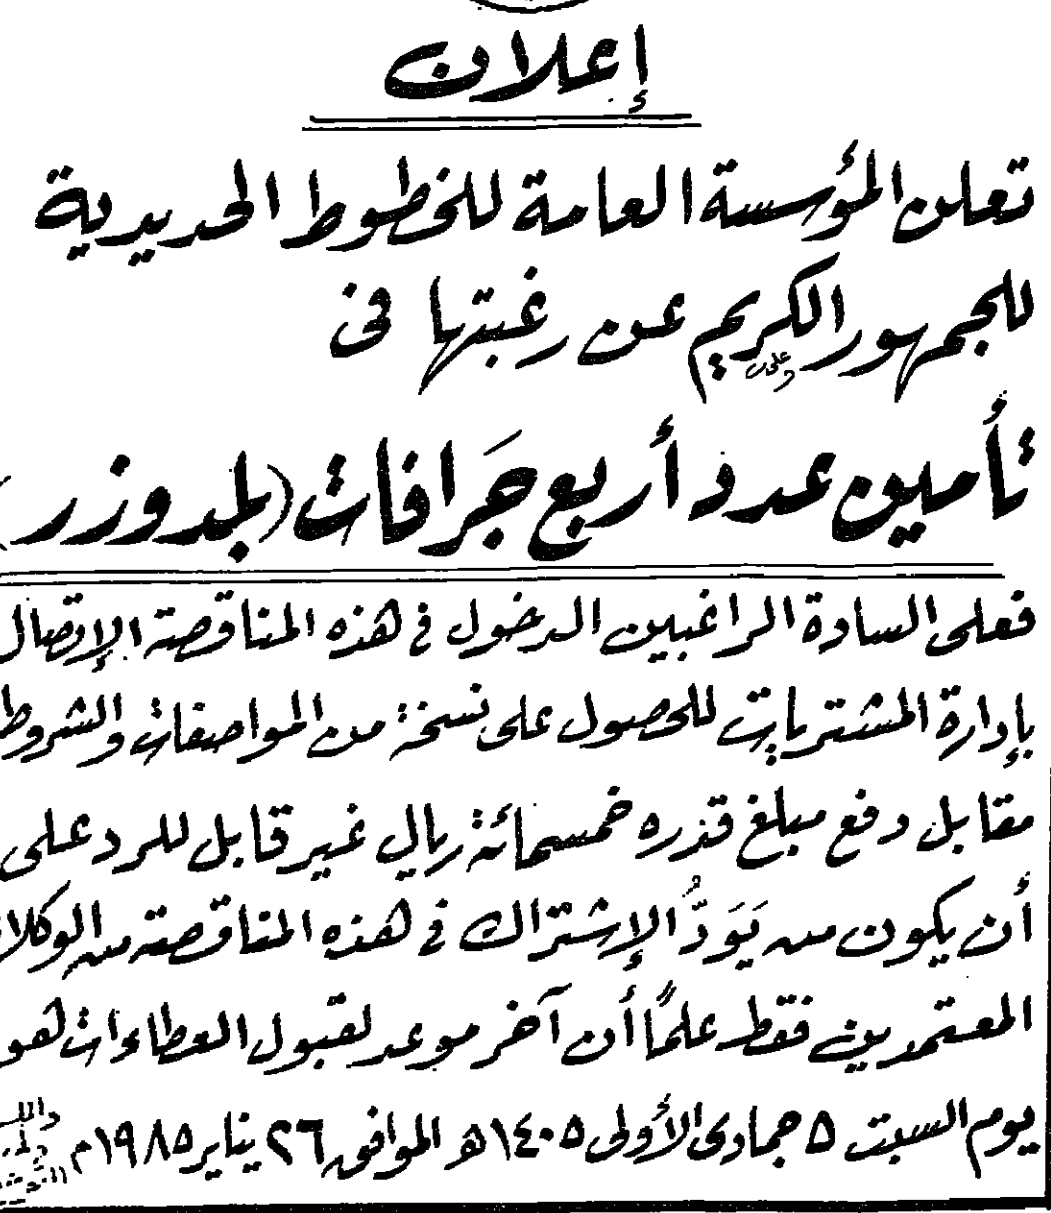 إعلان
تعلن المؤسسة العامة للخطوط الحديدية
للجمهور الكريم عن رغبتها في
تأمين عدد أربع جَرافات (بلدوزر)
فعلى السادة الراغبين الدخول في هذه المناقصة الإتصال
بإدارة المشتريات للحصول على نسخة من المواصفات والشروط
مقابل دفع مبلغ قدره خمسمائة ريال غير قابل للرد على
أن يكون من يَوَدُّ الإشتراك في هذه المناقصة من الوكلاء
المعتمدين فقط علمًا أن آخر موعد لقبول العطاءات هو
يوم السبت ٥ جمادى الأولى ١٤٠٥هـ الموافق ٢٦ يناير ١٩٨٥م